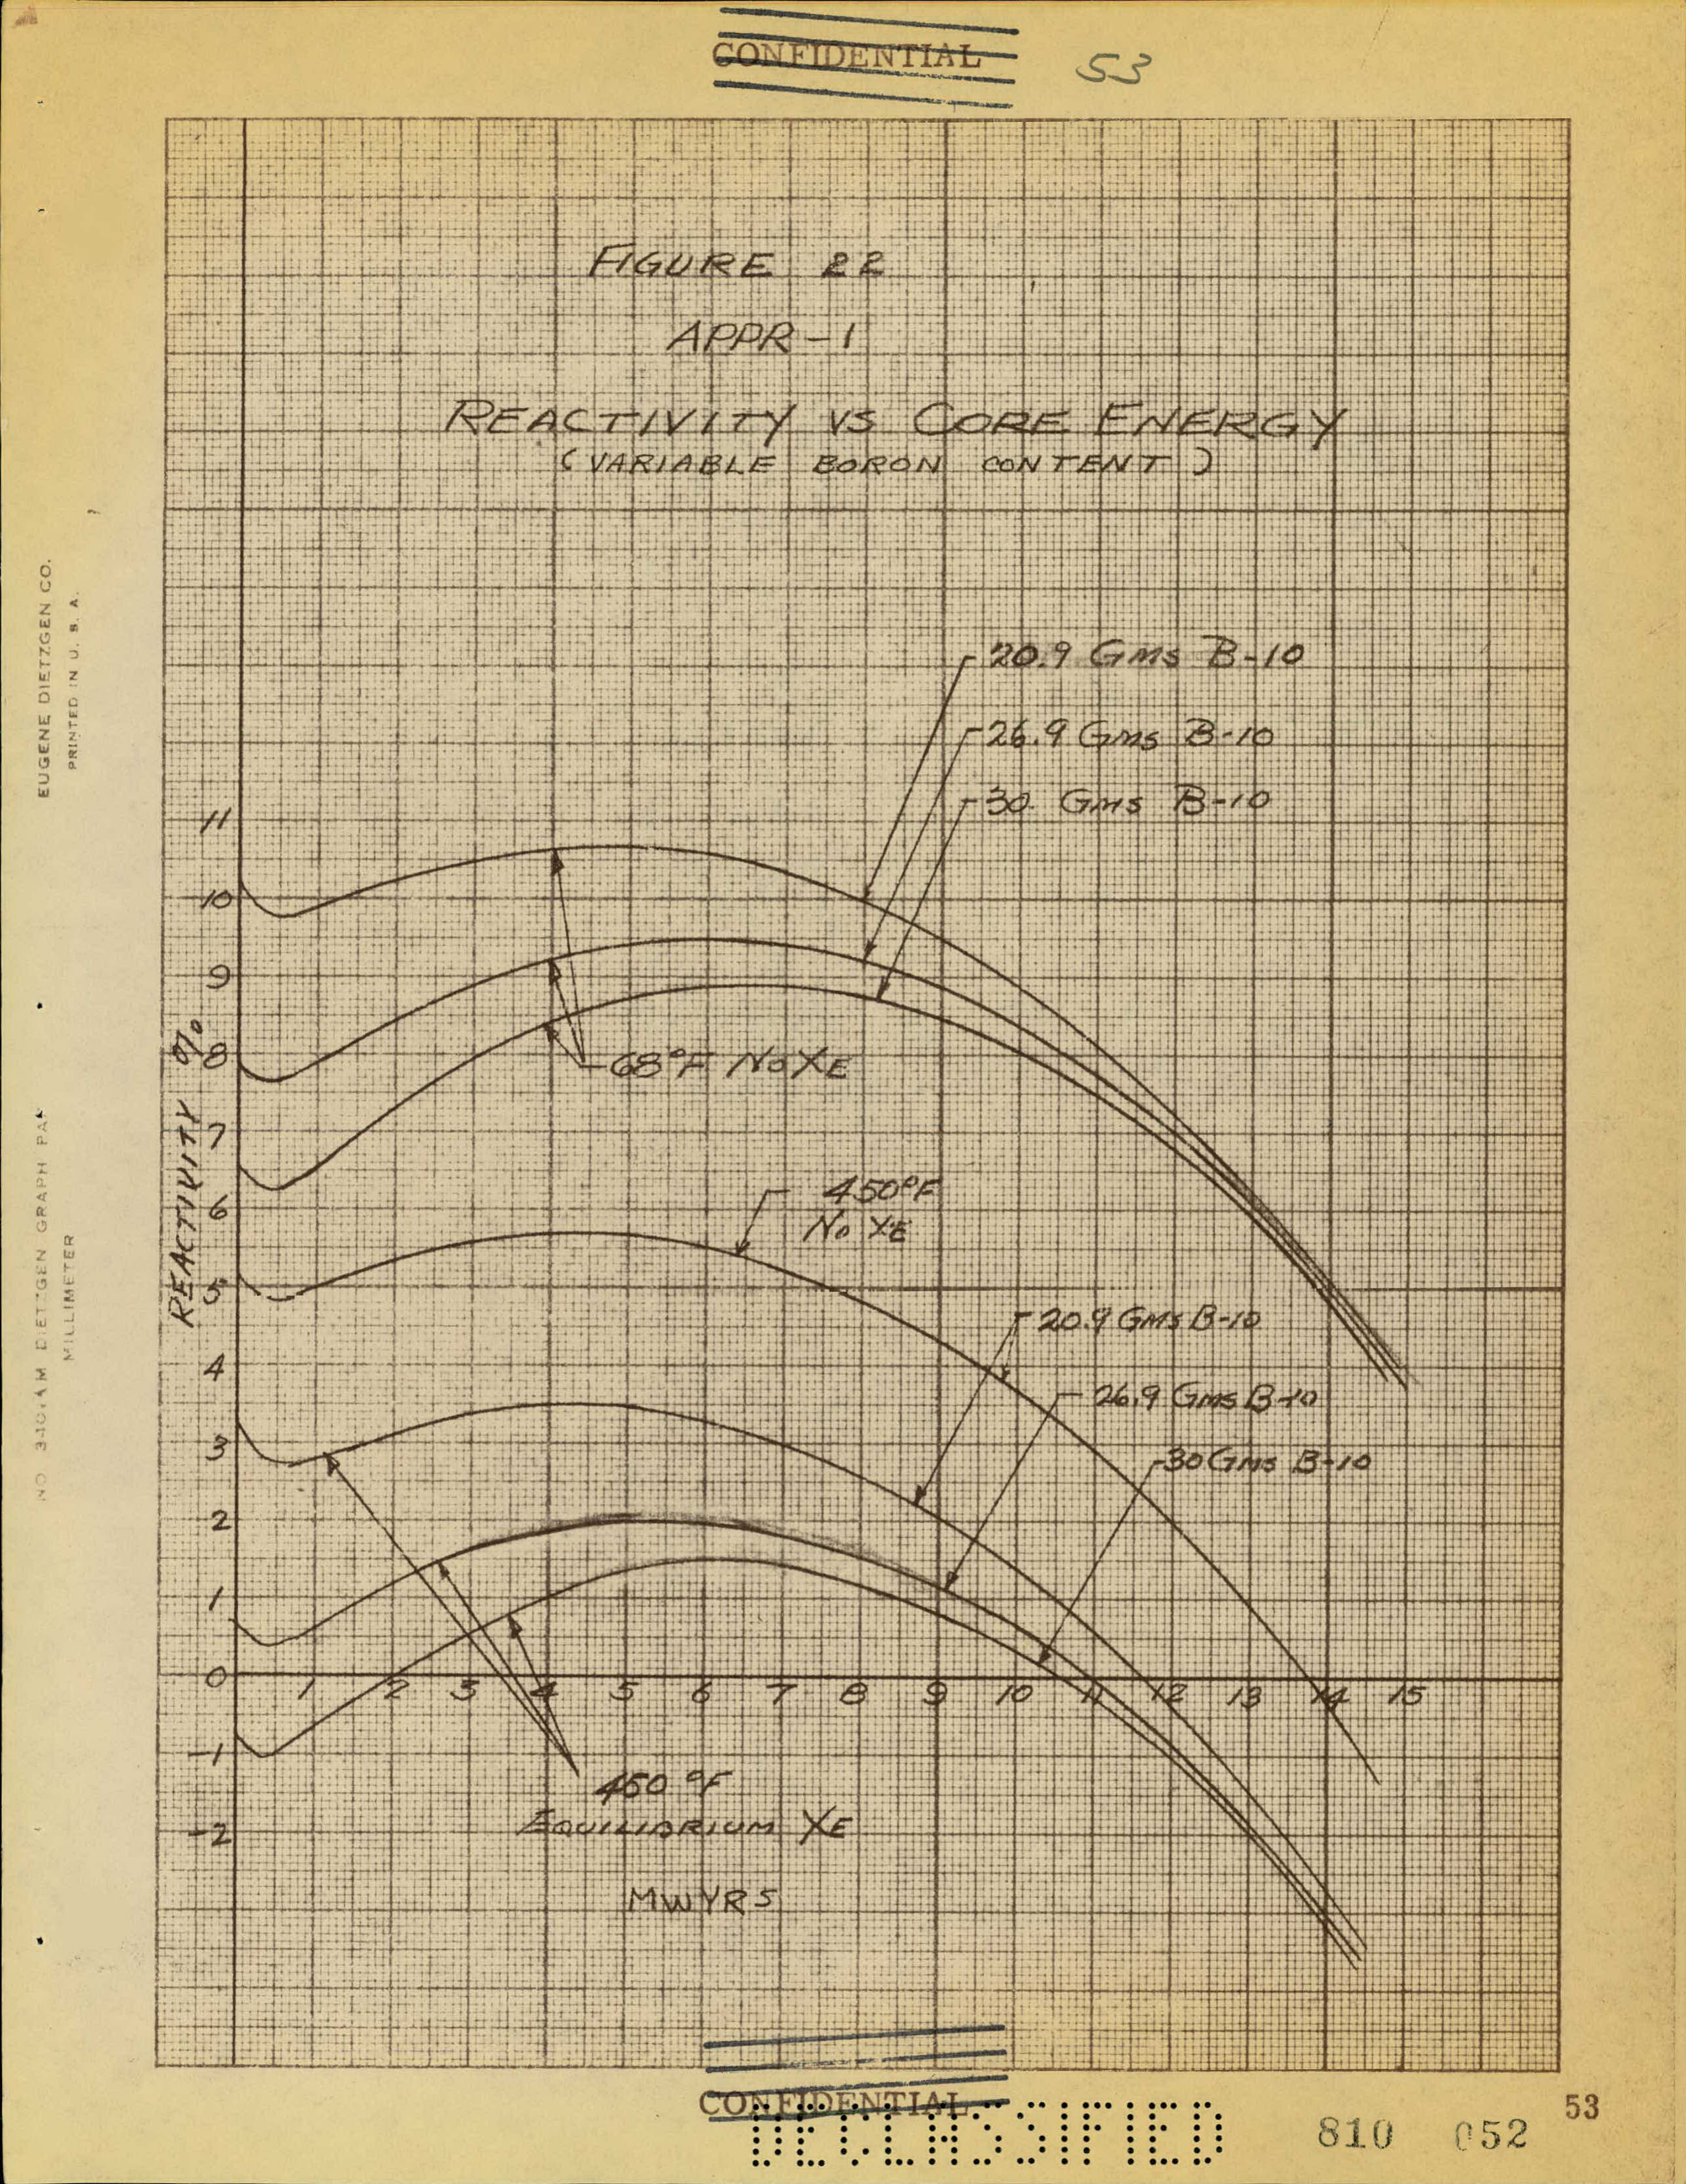 CONFIDENTIAL 53
FIGURE 22
APPR-1
REACTIVITY VS CORE ENERGY
(VARIABLE BORON CONTENT)
20.9 GMS B-10
26.9 GMS B-10
30. GMS B-10
68°F NO XE
450°F
NO XE
20.9 GMS B-10
26.9 GMS B-10
30 GMS B-10
450 °F
EQUILIBRIUM XE
MWYRS
REACTIVITY %
11
10
9
8
7
6
5
4
3
2
1
0
-1
-2
1 2 3 4 5 6 7 8 9 10 11 12 13 14 15
EUGENE DIETZGEN CO.
PRINTED IN U. S. A.
DIETZGEN GRAPH
MILLIMETER
CONFIDENTIAL
DECLASSIFIED
53
810 052